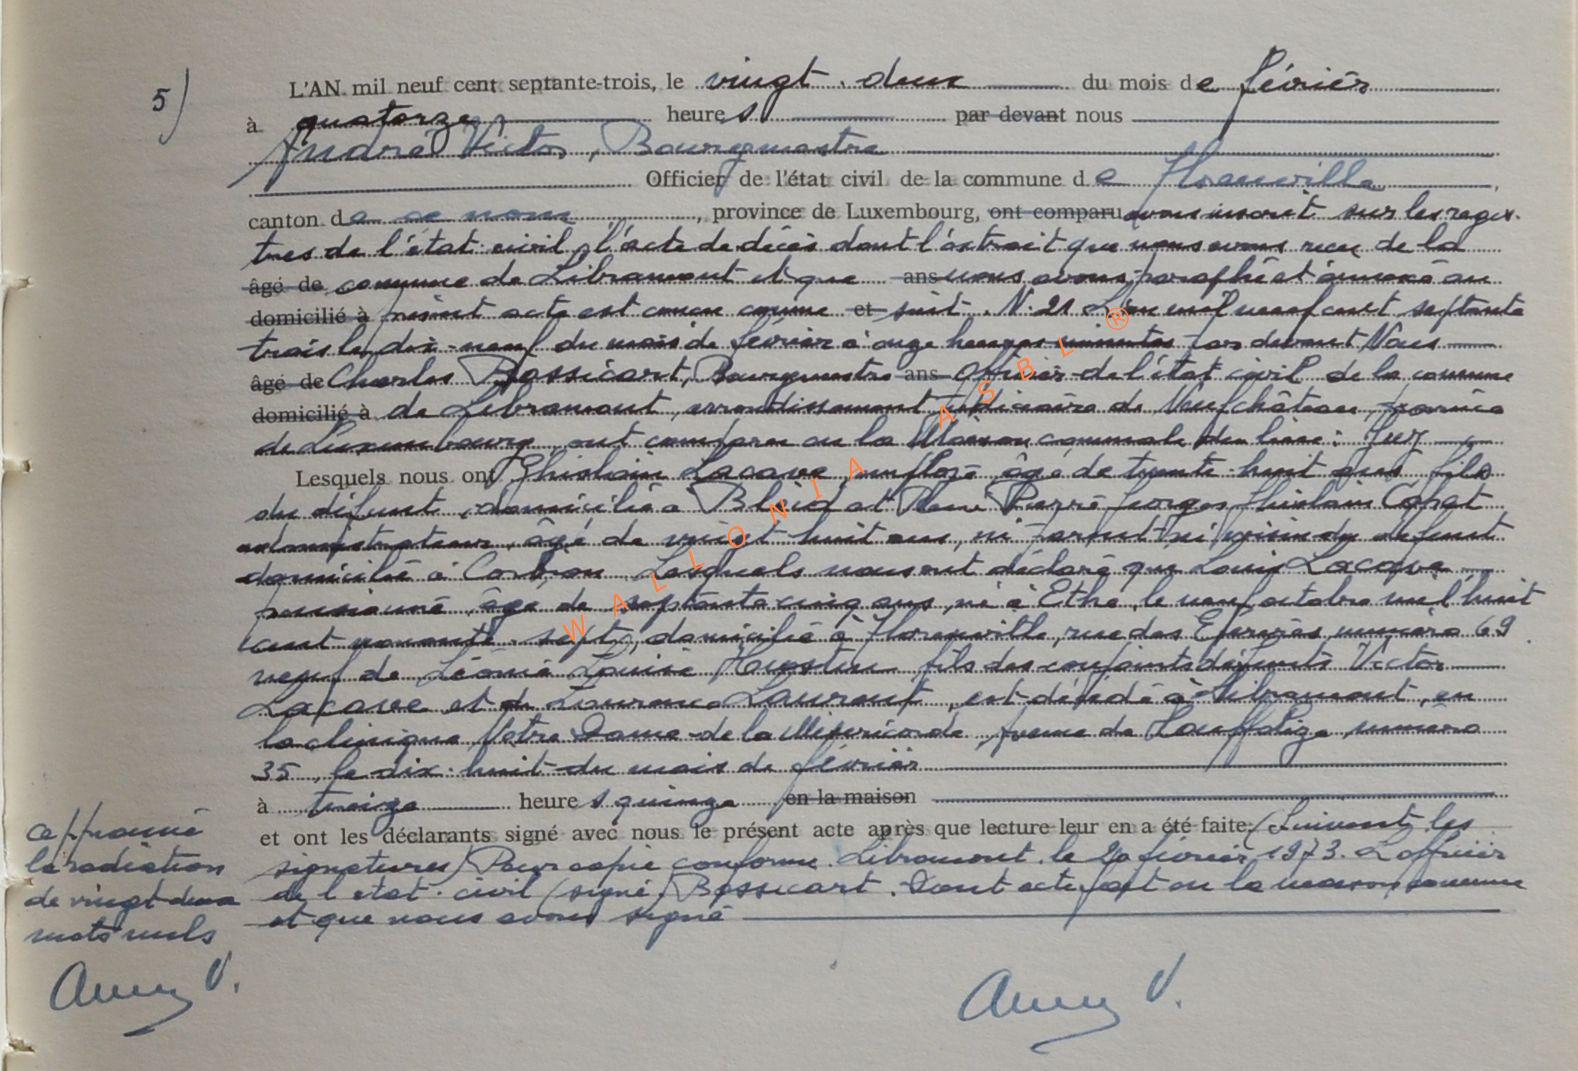 5)
L'AN mil neuf cent septante-trois, le vingt-deux du mois de février
à quatorze heures par devant nous
André Victor, Bourgmestre
Officier de l'état civil de la commune de Florenville
canton de ce nom, province de Luxembourg, ont comparu avons inscrit sur les regis-
tres de l'état civil, l'acte de décès dont l'extrait que nous avons reçu de la
âgé de commune de Libramont et que ans nous avons paraphé et annexé au
domicilié à présent acte est conçu comme et suit. N. 21 L'an mil neuf cent septante
trois le dix-neuf du mois de février à onze heures minutes par devant Nous
âgé de Charles Bossicart, Bourgmestre ans Officier de l'état civil de la commune
domicilié à de Libramont, arrondissement judiciaire de Neufchâteau, province
de Luxembourg, ont comparu en la Maison communale du lieu: Guy
Lesquels nous ont Ghislain Lacave, employé âgé de trente-huit ans fils
du défunt, domicilié à et Pierre Georges Ghislain
âgé de vingt-huit ans, ni parent ni voisin du défunt
domicilié à Corbion Lesquels nous ont déclaré que Louis Lacave
pensionné, âgé de septante cinq ans, né à Ethe, le neuf octobre mil huit
cent nonante-sept, domicilié à Florenville, rue des numéro 69
veuf de Léonie Louise fils des conjoints défunts Victor
Lacave et de Laurent, est décédé à Libramont, en
la clinique Notre Dame de la Miséricorde, Avenue de Houffalize, numéro
35, le dix-huit du mois de février
à treize heures quinze en la maison
et ont les déclarants signé avec nous le présent acte après que lecture leur en a été faite. (Suivent les
signatures) Pour copie conforme. Libramont. le 20 février 1973. L'officier
de l'état-civil (signé) Bossicart. Dont acte fait en la maison commune
et que nous avons signé
approuvé
la radiation
de vingt-deux
mots nuls
V.
V.
WALLONIA ASBL ®